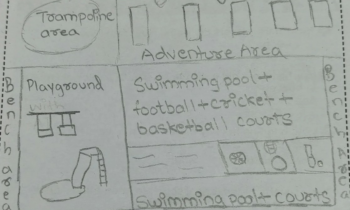 Trampoline
area
Adventure Area
Bench area
Playground
Swimming pool+
football+cricket+
basketball courts
Bench Area
Swimming pool+ courts